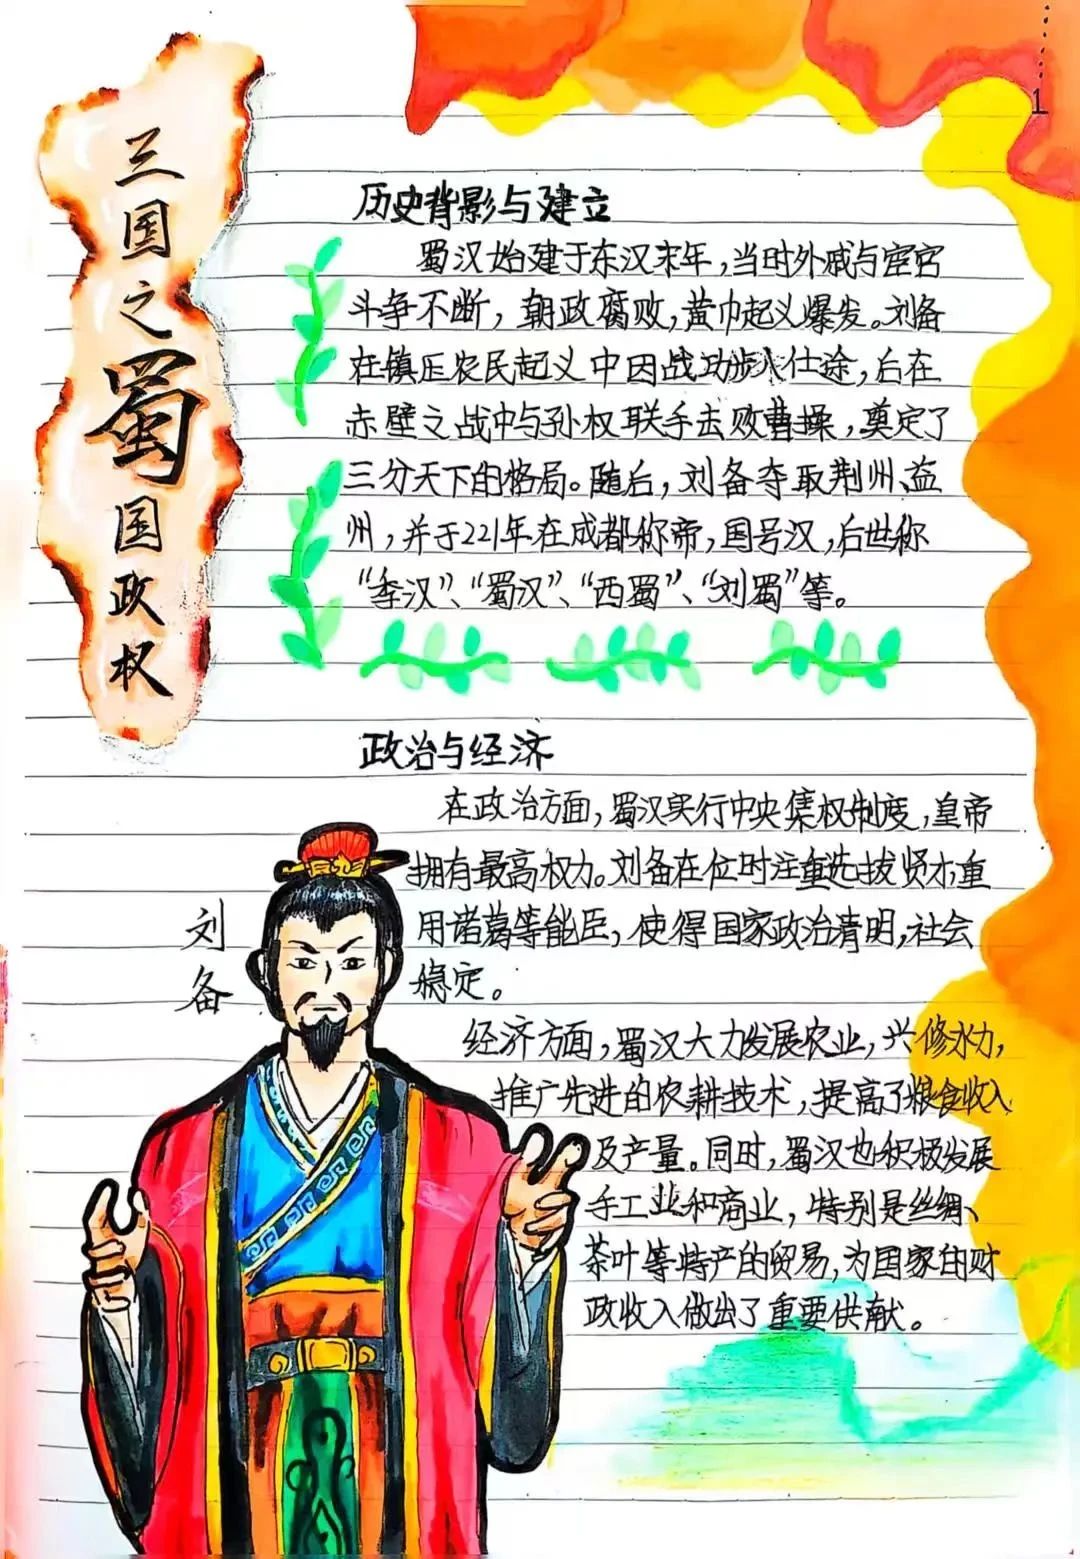 三国之蜀国政权
1
历史背影与建立
蜀汉始建于东汉末年，当时外戚与宦官
斗争不断，朝政腐败，黄巾起义爆发。刘备
在镇压农民起义中因战功步入仕途，后在
赤壁之战中与孙权联手击败曹操，奠定了
三分天下的格局。随后，刘备夺取荆州、益
州，并于221年在成都称帝，国号汉，后世称
“季汉”、“蜀汉”、“西蜀”、“刘蜀”等。
政治与经济
在政治方面，蜀汉实行中央集权制度，皇帝
拥有最高权力。刘备在位时注重选拔贤才，重
用诸葛等能臣，使得国家政治清明，社会
稳定。
刘备
经济方面，蜀汉大力发展农业，兴修水力，
推广先进的农耕技术，提高了粮食收入
及产量。同时，蜀汉也积极发展
手工业和商业，特别是丝绸、
茶叶等特产的贸易，为国家的财
政收入做出了重要供献。